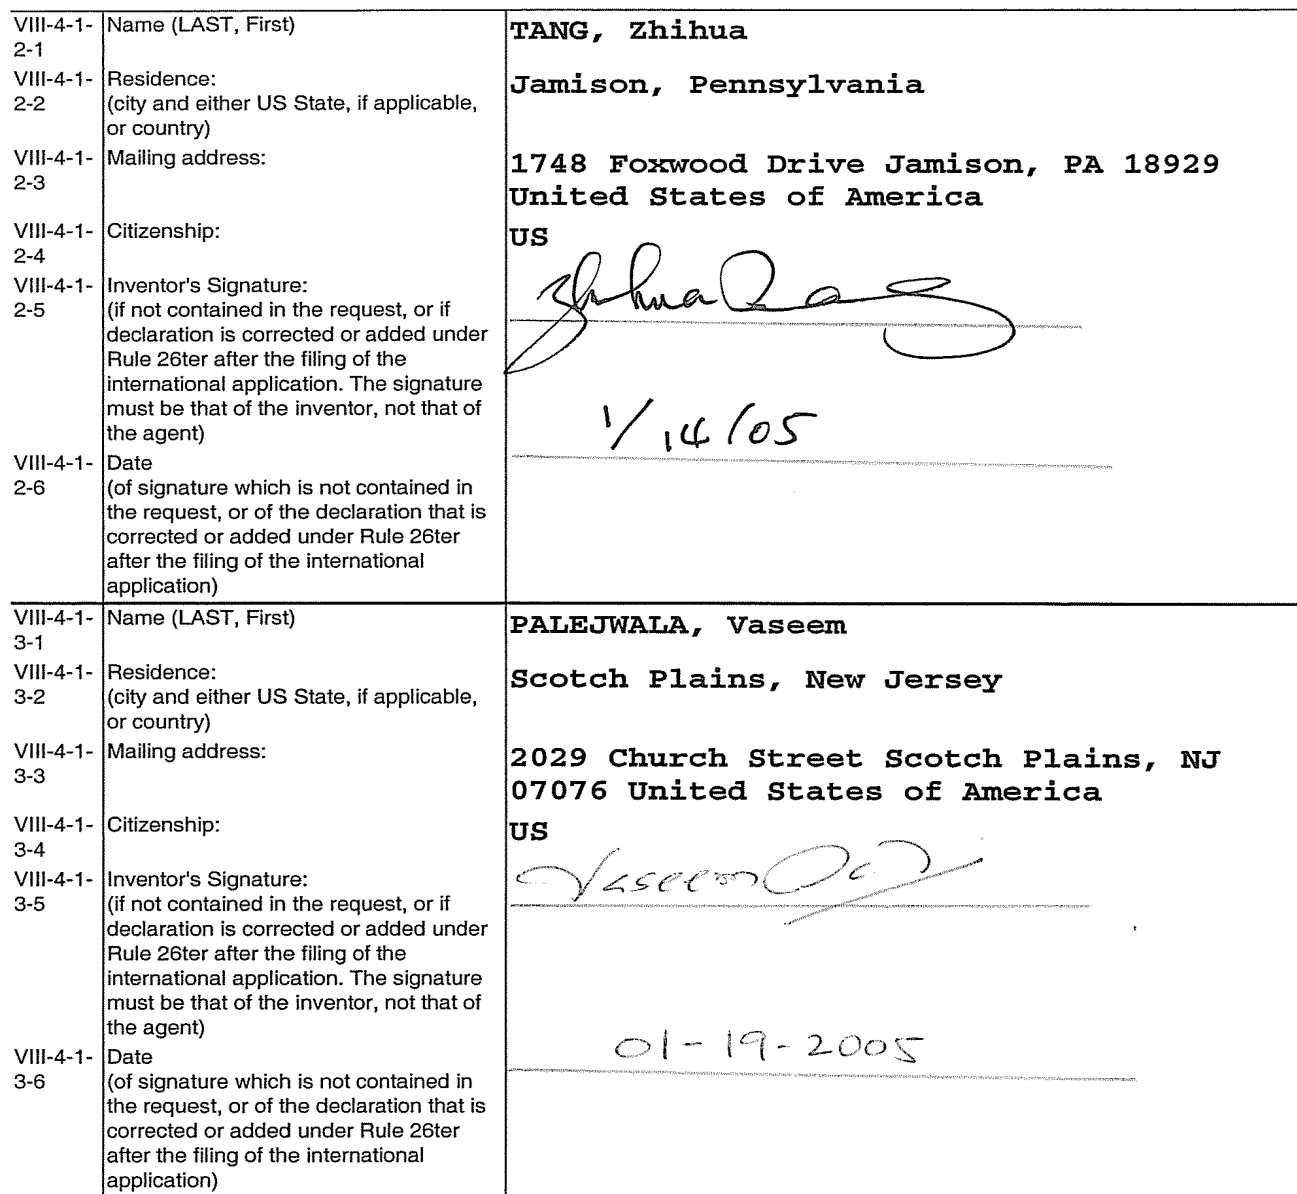 VIII-4-1-2-1 Name (LAST, First) TANG, Zhihua
VIII-4-1-2-2 Residence: (city and either US State, if applicable, or country) Jamison, Pennsylvania
VIII-4-1-2-3 Mailing address: 1748 Foxwood Drive Jamison, PA 18929
United States of America
VIII-4-1-2-4 Citizenship: US
VIII-4-1-2-5 Inventor's Signature: Zhihua Tang
(if not contained in the request, or if
declaration is corrected or added under
Rule 26ter after the filing of the
international application. The signature
must be that of the inventor, not that of
the agent)
1/14/05
VIII-4-1-2-6 Date
(of signature which is not contained in
the request, or of the declaration that is
corrected or added under Rule 26ter
after the filing of the international
application)
VIII-4-1-3-1 Name (LAST, First) PALEJWALA, Vaseem
VIII-4-1-3-2 Residence: (city and either US State, if applicable, or country) Scotch Plains, New Jersey
VIII-4-1-3-3 Mailing address: 2029 Church Street Scotch Plains, NJ
07076 United States of America
VIII-4-1-3-4 Citizenship: US
VIII-4-1-3-5 Inventor's Signature: Vaseem
(if not contained in the request, or if
declaration is corrected or added under
Rule 26ter after the filing of the
international application. The signature
must be that of the inventor, not that of
the agent)
01-19-2005
VIII-4-1-3-6 Date
(of signature which is not contained in
the request, or of the declaration that is
corrected or added under Rule 26ter
after the filing of the international
application)